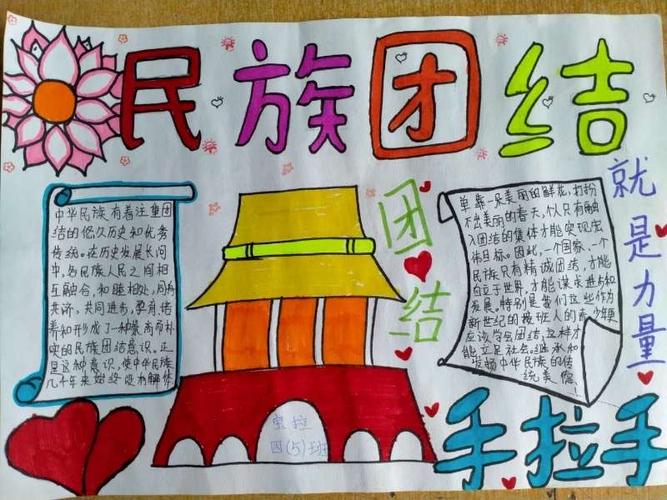 民族团结
中华民族有着注重团
结的悠久历史和优秀
传统。在历史发展长河
中,各民族人民之间相
互融合,和睦相处,同舟
共济、共同进步,孕育、培
养和形成了一种最高尚朴
实的民族团结意识。正
是这种意识,使中华民族
几千年来始终没有解体
团结
单靠一朵美丽的鲜花,打扮
不出美丽的春天,个人只有融
入团结的集体才能实现宏
伟目标。因此,一个国家,一个
民族只有精诚团结,才能
自立于世界,才能谋求进步和
发展。特别是我们这些作为
新世纪的接班人的青少年更
应该学会团结,这样才
能立足社会。继承和
发扬中华民族的传
统美德
就是力量
宝拉
四(5)班
手拉手